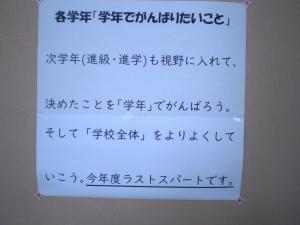 各学年「学年でがんばりたいこと」
次学年(進級・進学)も視野に入れて、
決めたことを「学年」でがんばろう。
そして「学校全体」をよりよくして
いこう。今年度ラストスパートです。